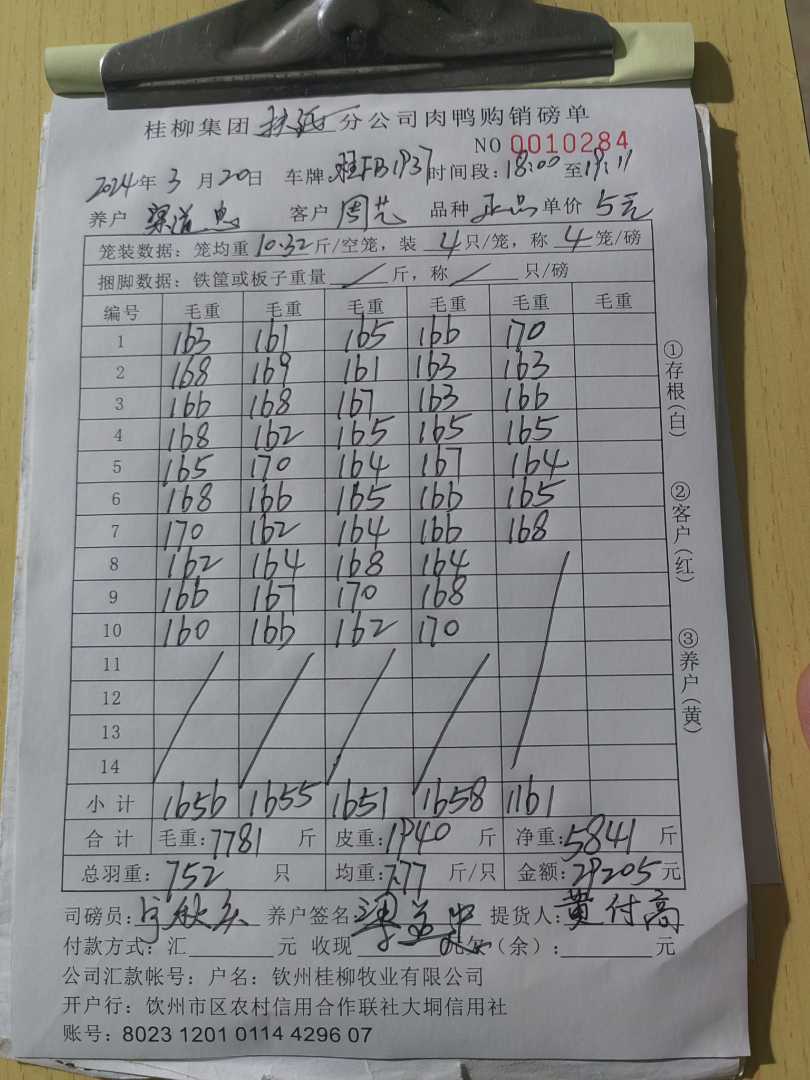 桂柳集团 分公司肉鸭购销磅单
NO 0010284
2024年3月20日 车牌 桂FB1937 时间段:18:00至19:11
养户 客户 周艺 品种 正品 单价 5元
笼装数据:笼均重 10.32 斤/空笼,装 4 只/笼,称 4 笼/磅
捆脚数据:铁筐或板子重量 / 斤,称 / 只/磅
编号 毛重 毛重 毛重 毛重 毛重 毛重
1 163 161 165 166 170
2 168 169 161 163 163
3 166 168 167 163 166
4 168 162 165 165 165
5 165 170 164 167 164
6 168 166 165 166 165
7 170 162 164 166 168
8 162 164 168 164
9 166 167 170 168
10 160 166 162 170
11
12
13
14
小计 1656 1655 1651 1658 1161
合计 毛重:7781 斤 皮重:1940 斤 净重:5841 斤
总羽重:752 只 均重:7.77 斤/只 金额:29205元
司磅员: 养户签名: 提货人:黄付高
付款方式:汇 元 收现 元欠(余): 元
公司汇款帐号:户名:钦州桂柳牧业有限公司
开户行:饮州市区农村信用合作联社大垌信用社
账号:8023 1201 0114 4296 07
①存根(白)
②客户(红)
③养户(黄)